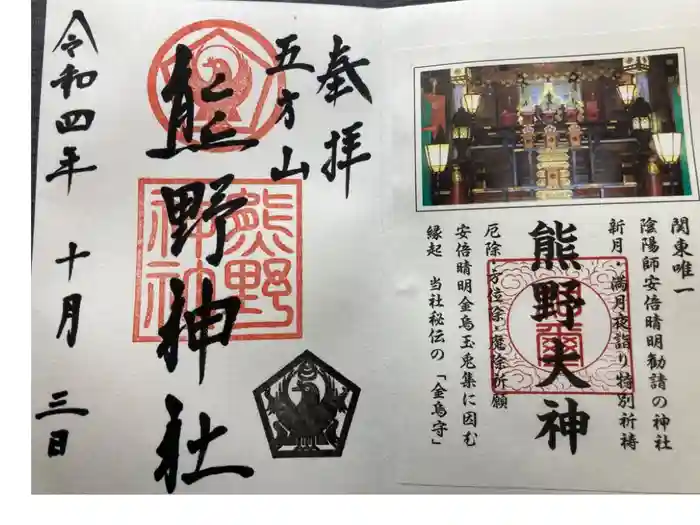 関東唯一
陰陽師安倍晴明勧請の神社
新月・満月夜詣り特別祈祷
熊野大神
厄除・方位除・魔除祈願
安倍晴明金烏玉兎集に因む
縁起 当社秘伝の「金烏守」
奉拝
五方山
熊野神社
熊野
神社
令和四年 十月 三日